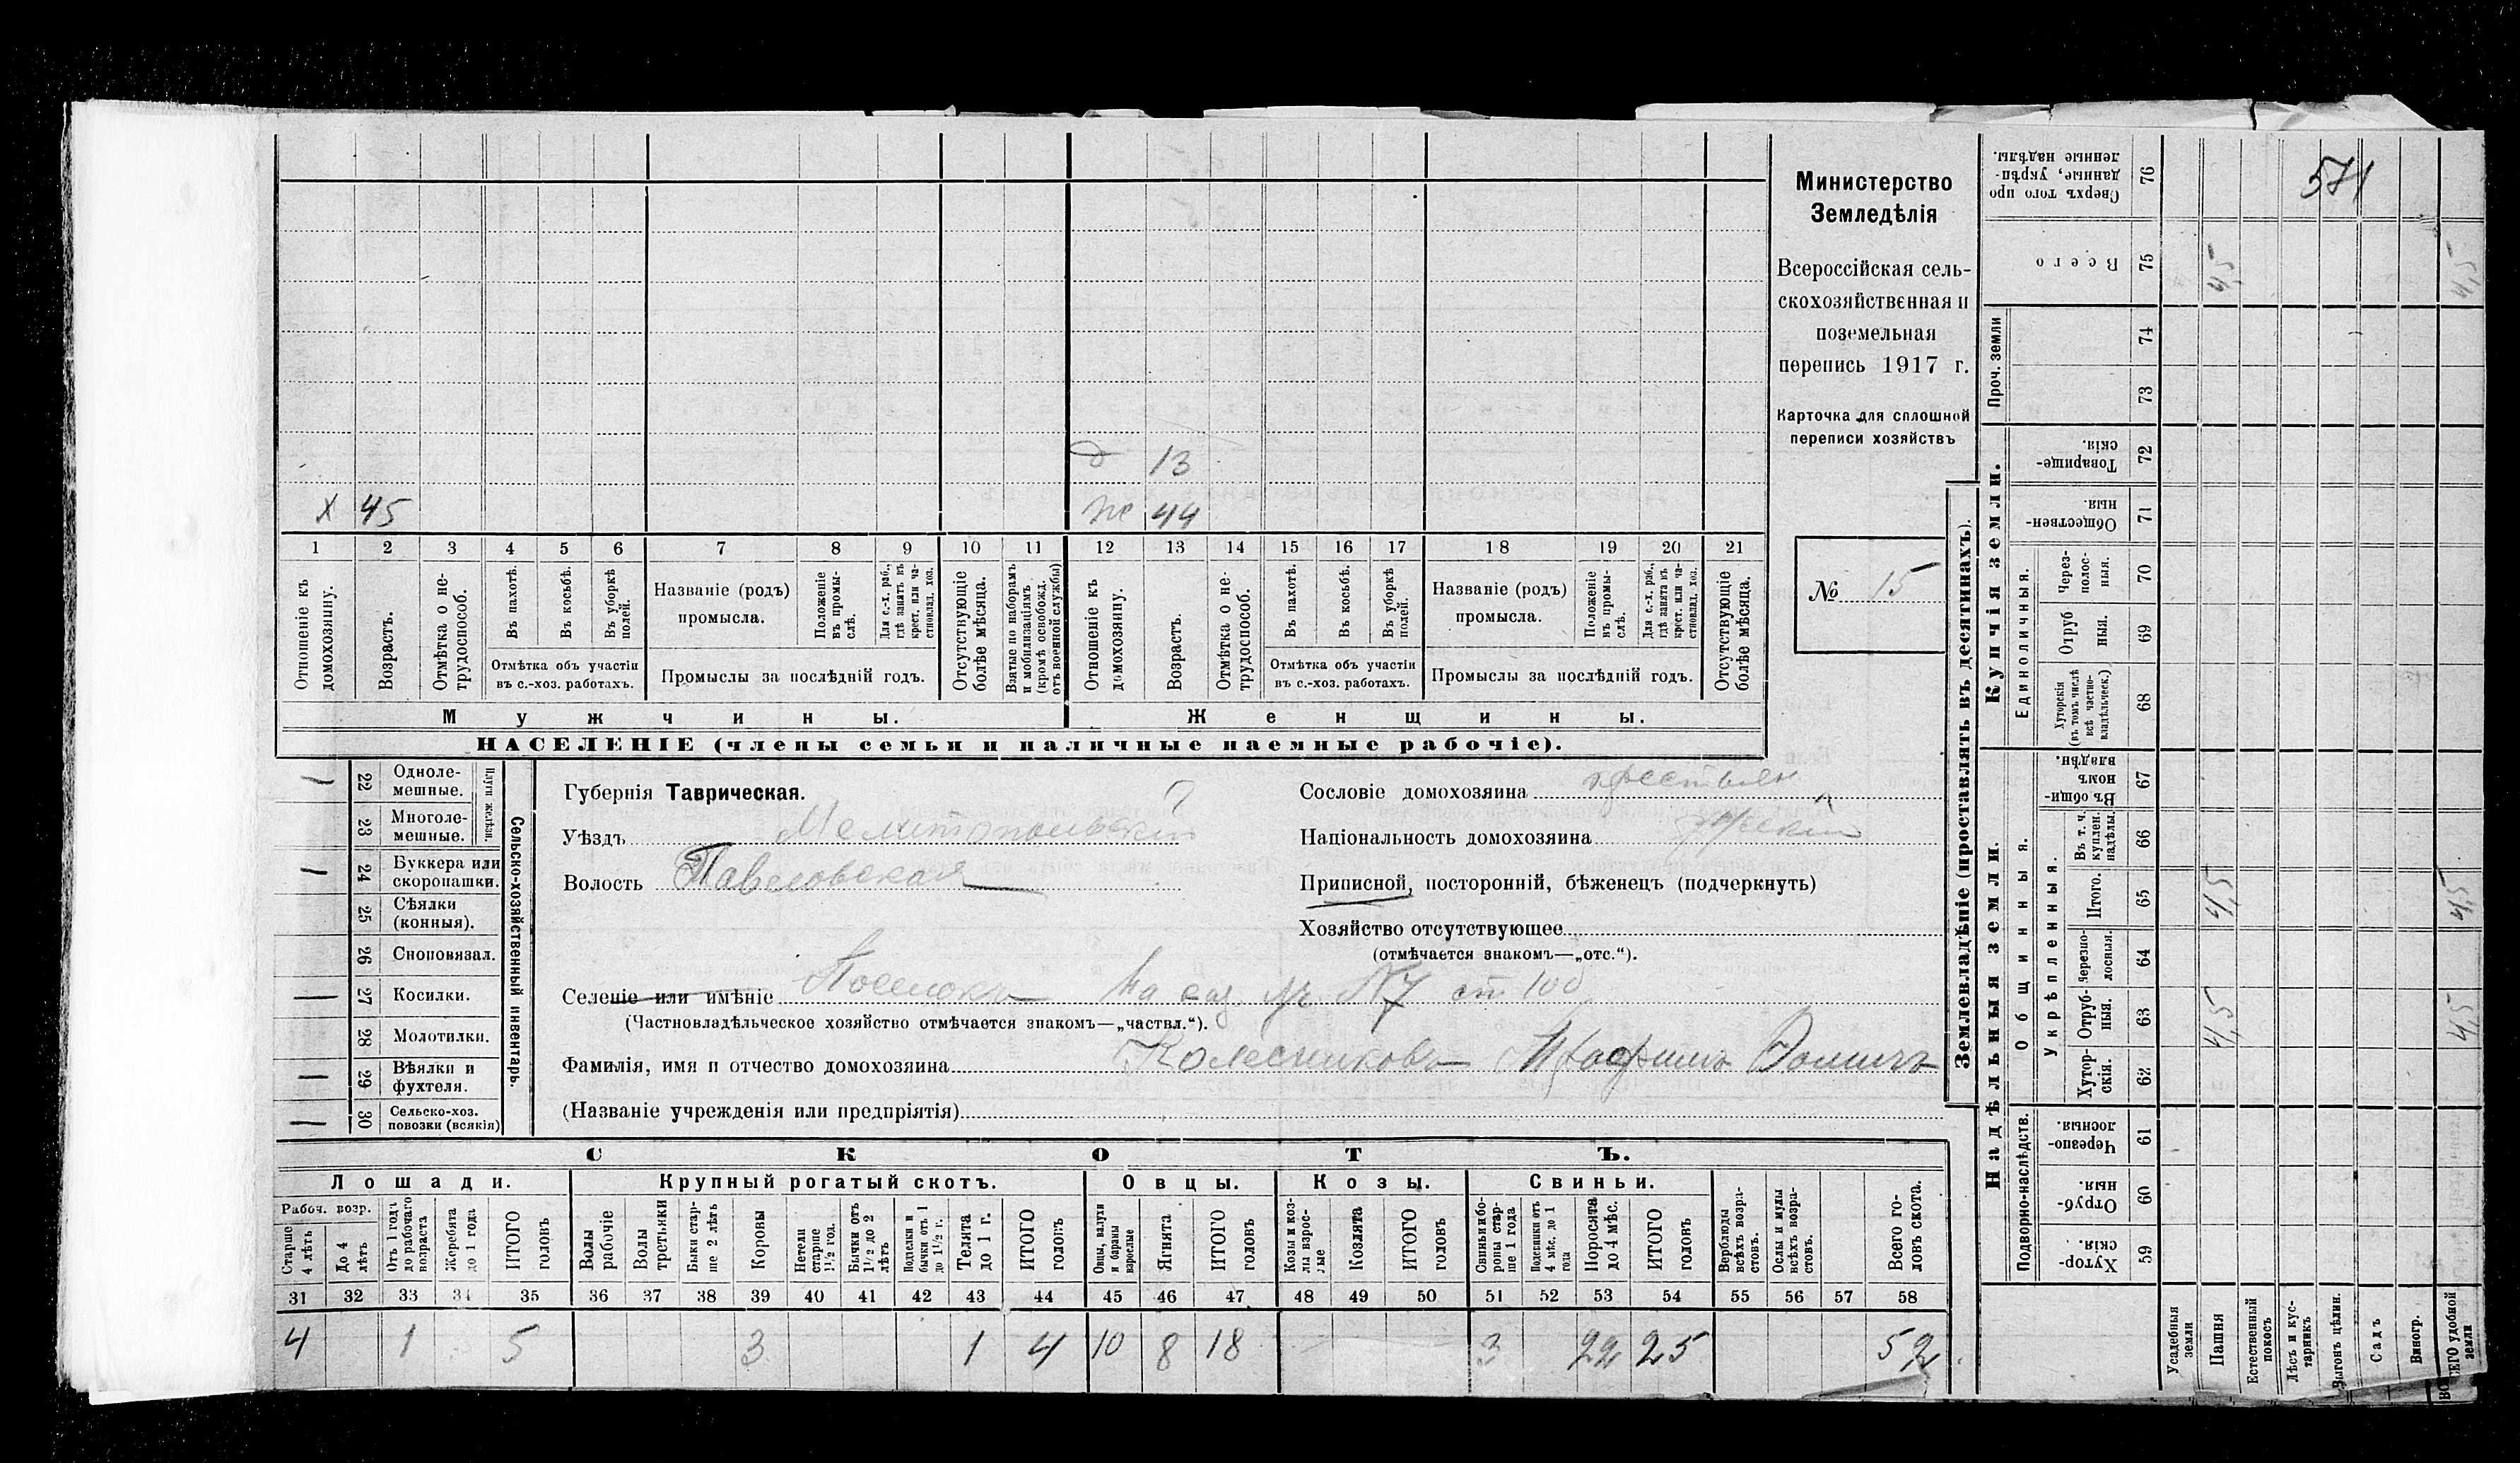 571
Министерство
Земледѣлія
Всероссійская сель-
скохозяйственная и
поземельная
перепись 1917 г.
Карточка для сплошной
переписи хозяйствъ
№ 15
13
х 45 ж 44
1 2 3 4 5 6 7 8 9 10 11 12 13 14 15 16 17 18 19 20 21
Отношеніе къ домохозяину.
Возрастъ.
Отмѣтка о не-трудоспособ.
Въ пахотѣ.
Въ косьбѣ.
Въ уборкѣ полей.
Отмѣтка объ участіи
въ с.-хоз. работахъ.
Названіе (родъ)
промысла.
Положеніе въ промы-слѣ.
Для с.-х. раб., гдѣ занятъ въ крест. или ча-стновлад. хоз.
Промыслы за послѣдній годъ.
Отсутствующіе болѣе мѣсяца.
Взятые по наборамъ и мобилизаціямъ (кромѣ освобожд. отъ военной службы)
Отношеніе къ домохозяину.
Возрастъ.
Отмѣтка о не-трудоспособ.
Въ пахотѣ.
Въ косьбѣ.
Въ уборкѣ полей.
Отмѣтка объ участіи
въ с.-хоз. работахъ.
Названіе (родъ)
промысла.
Положеніе въ промы-слѣ.
Для с.-х. раб., гдѣ занята въ крест. или ча-стновлад. хоз.
Промыслы за послѣдній годъ.
Отсутствующіе болѣе мѣсяца.
Мужчины. Женщины.
НАСЕЛЕНІЕ (члены семьи и наличные наемные рабочіе).
Сельско-хозяйственный инвентарь.
Плуги желѣзн.
22 Одноле-мешные.
23 Многоле-мешные.
24 Буккера или скоропашки.
25 Сѣялки (конныя).
26 Сноповязал.
27 Косилки.
28 Молотилки.
29 Вѣялки и фухтеля.
30 Сельско-хоз. повозки (всякія)
Губернія Таврическая.
Уѣздъ Мелитопольскій
Волость Павловская
Селеніе или имѣніе Поселокъ На каз. уч. №7 ст 100
(Частновладѣльческое хозяйство отмѣчается знакомъ—„частвл.“).
Фамилія, имя и отчество домохозяина Колесниковъ Трофимъ Фомичъ
(Названіе учрежденія или предпріятія)
Сословіе домохозяина крестьян
Національность домохозяина
Приписной, посторонній, бѣженец (подчеркнуть)
Хозяйство отсутствующее
(отмѣчается знакомъ—„отс.“).
СКОТЪ.
Лошади. Крупный рогатый скотъ. Овцы. Козы. Свиньи.
Рабоч. возр.
Старше 4 лѣтъ
До 4 лѣтъ
Отъ 1 года до рабочаго возраста
Жеребята до 1 года
ИТОГО головъ
Волы рабочіе
Волы третьяки
Быки стар-ше 2 лѣтъ
Коровы
Нетели старше 1½ год.
Бычки отъ 1½ до 2 лѣтъ
Подтелки и бычки отъ 1 до 1½ г.
Телята до 1 г.
ИТОГО головъ
Овцы, валухи и бараны взрослые
Ягнята
ИТОГО головъ
Козы и коз-лы взрос-лые
Козлята
ИТОГО головъ
Свиньи и бо-ровы стар-ше 1 года
Подсвинки отъ 4 мѣс. до 1 года
Поросята до 4 мѣс.
ИТОГО головъ
Верблюды всѣхъ возра-стовъ.
Ослы и мулы всѣхъ возра-стовъ.
Всего го-ловъ скота.
31 32 33 34 35 36 37 38 39 40 41 42 43 44 45 46 47 48 49 50 51 52 53 54 55 56 57 58
4 1 5 3 1 4 10 8 18 3 22 25 52
Землевладѣніе (проставлять въ десятинахъ).
Купчія земли.
Надѣльныя земли.
Сверхъ того про-данные, укрѣп-ленные надѣлы. 76
Всего 75 4,5 4,5
Проч. земли 74 73
Товарище-скія. 72
Обществен-ныя. 71
Единоличныя.
Через-полос-ныя. 70
Отруб ныя. 69
Хуторскія (въ томъ числѣ всѣ частно-владѣльческ.) 68
Общинныя.
Въ общи-номъ владѣн. 67
Укрѣпленныя.
Въ т. ч. куплен. надѣлы. 66
Итого. 65 4,5 4,5
Черезпо-лосныя. 64
Отруб-ныя. 63 4,5 4,5
Хутор-скія. 62
Подворно-наслѣдств.
Черезпо-лосныя. 61
Отруб-ныя. 60
Хутор-скія. 59
Усадебныя земли
Пашня
Естественный покосъ
Лѣсъ и кус-тарникъ
Выгонъ цѣлин.
Садъ
Виногр.
ВСЕГО удобной земли